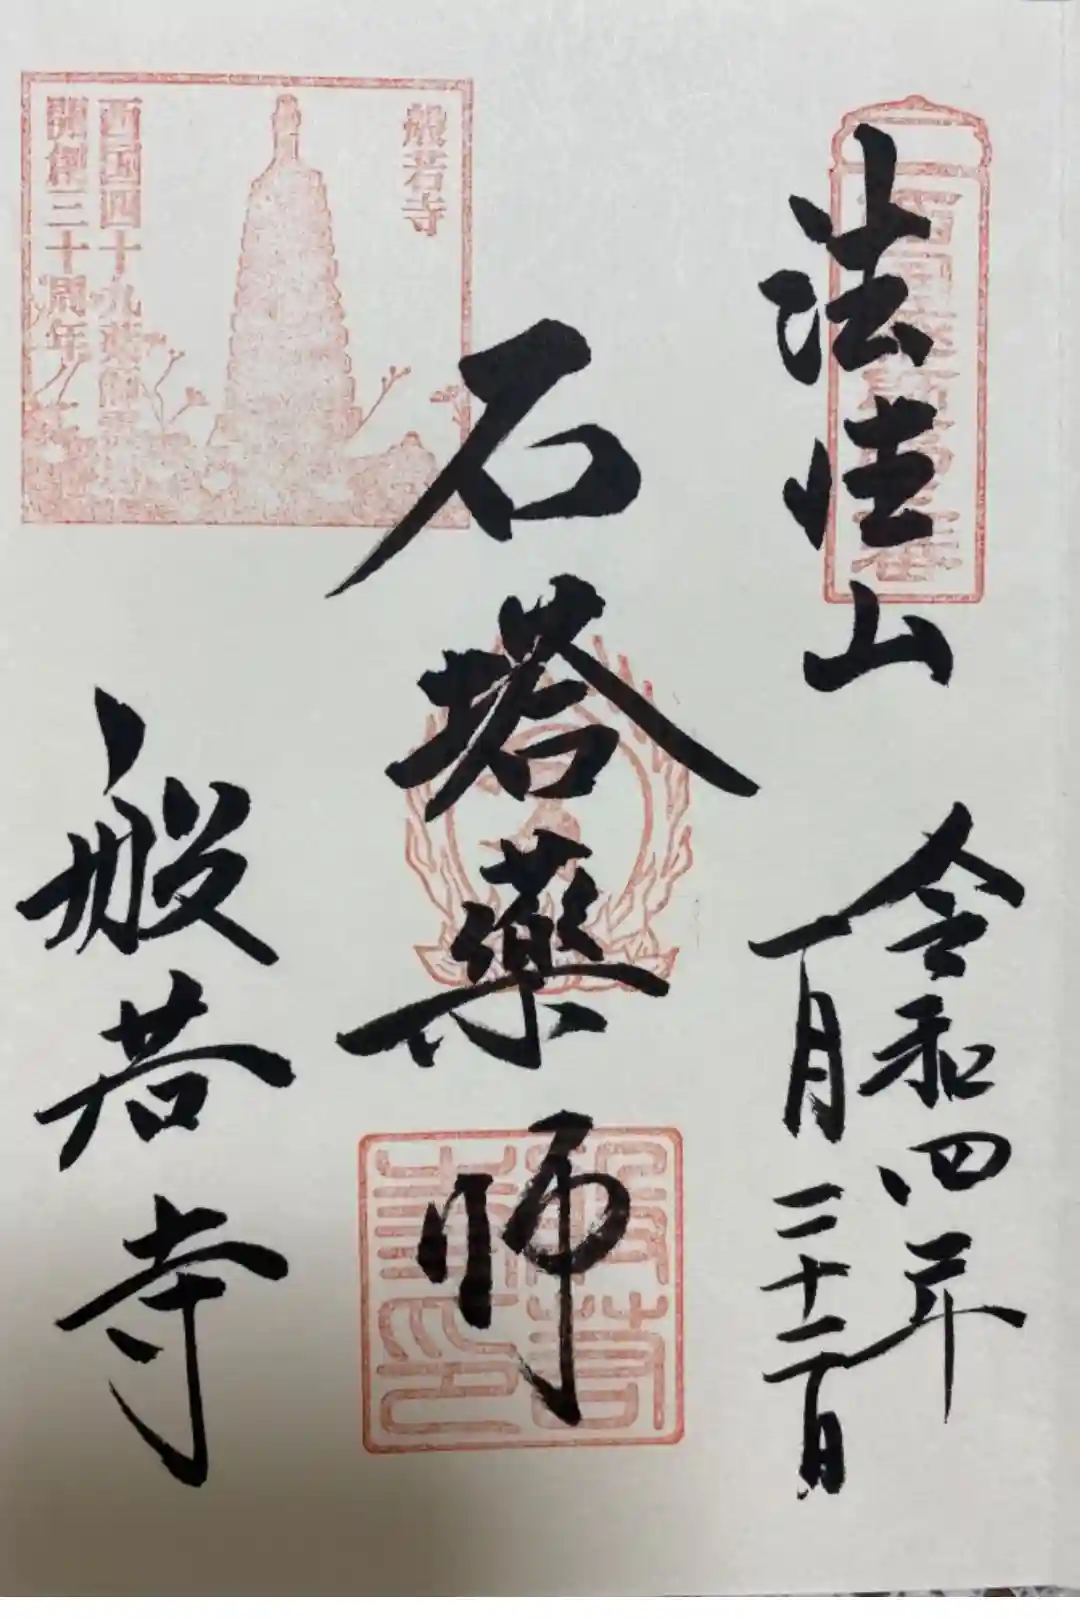 法性山
令和四年
一月二十二日
石塔薬師
般若寺
般若寺
西国四十九薬師霊
開創三十周年
般若寺印